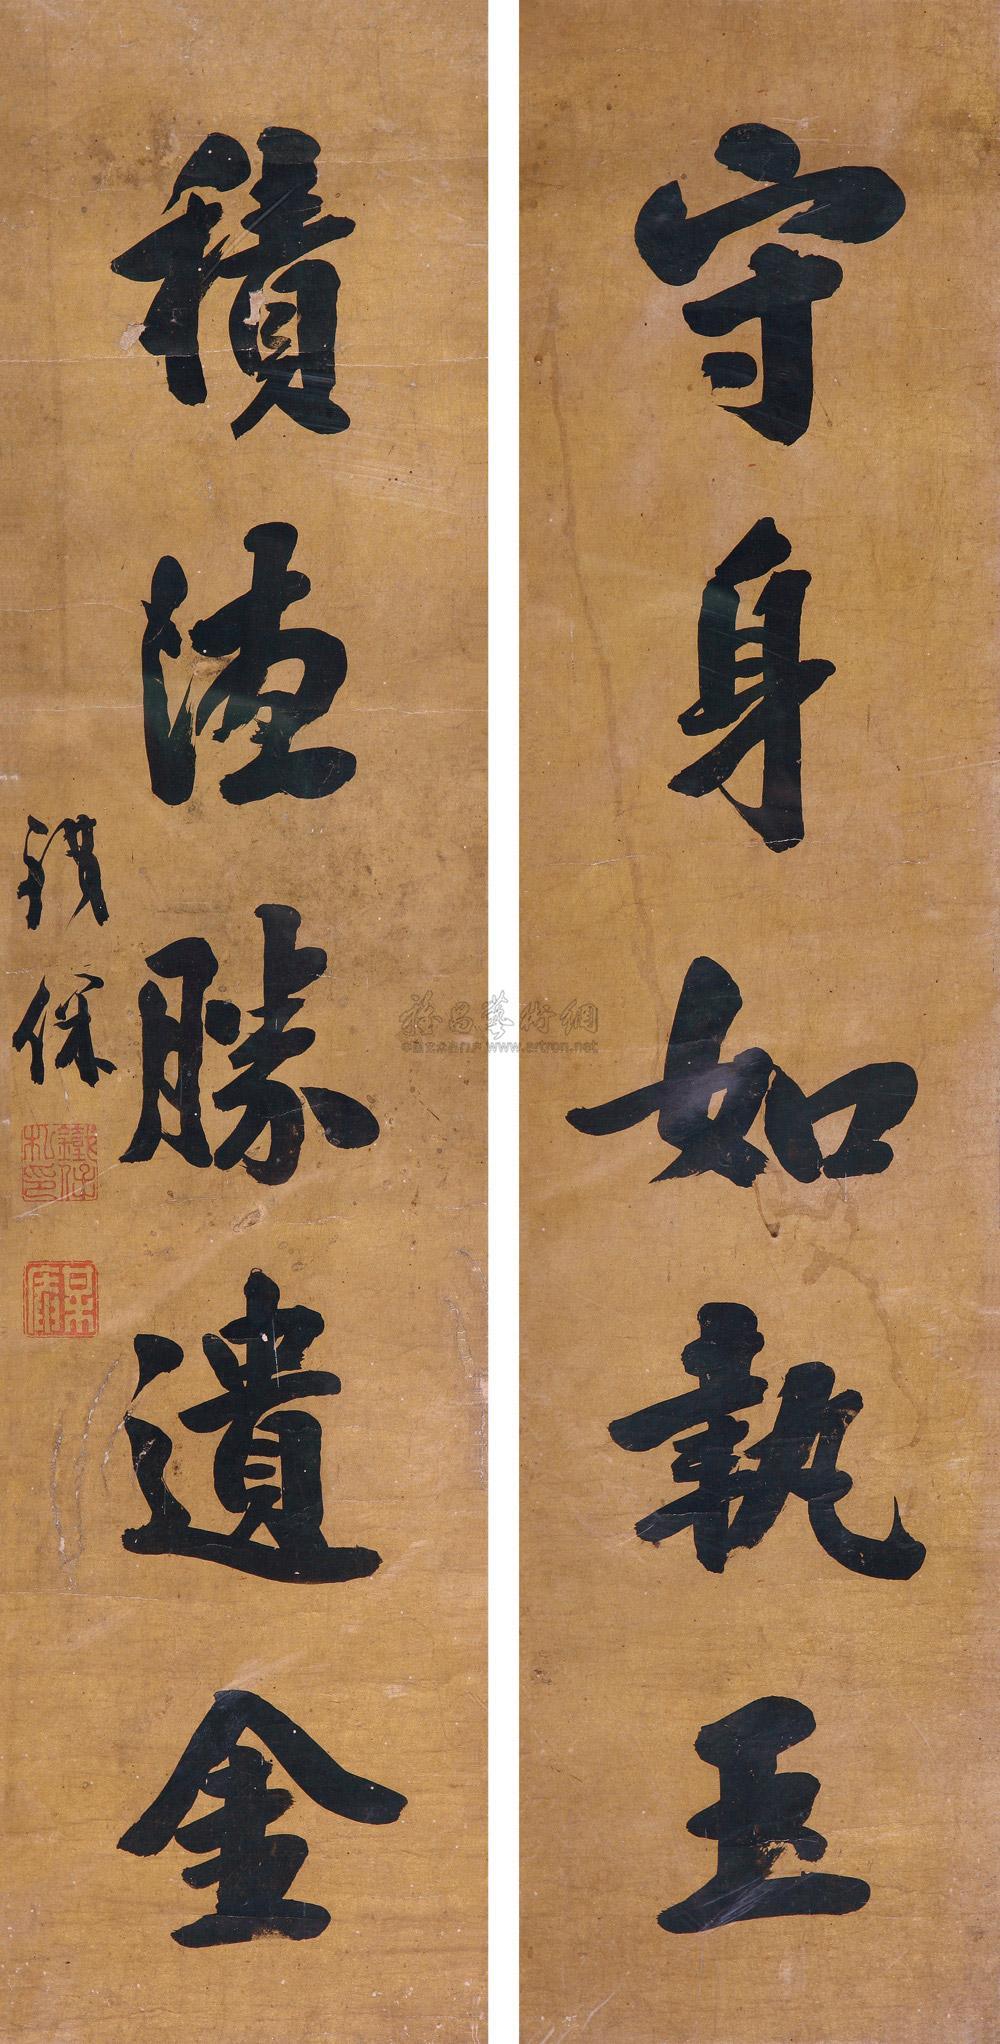 守身如執玉
積德勝遺金
鐵保
鐵保私印
雅昌藝術網
www.artron.net